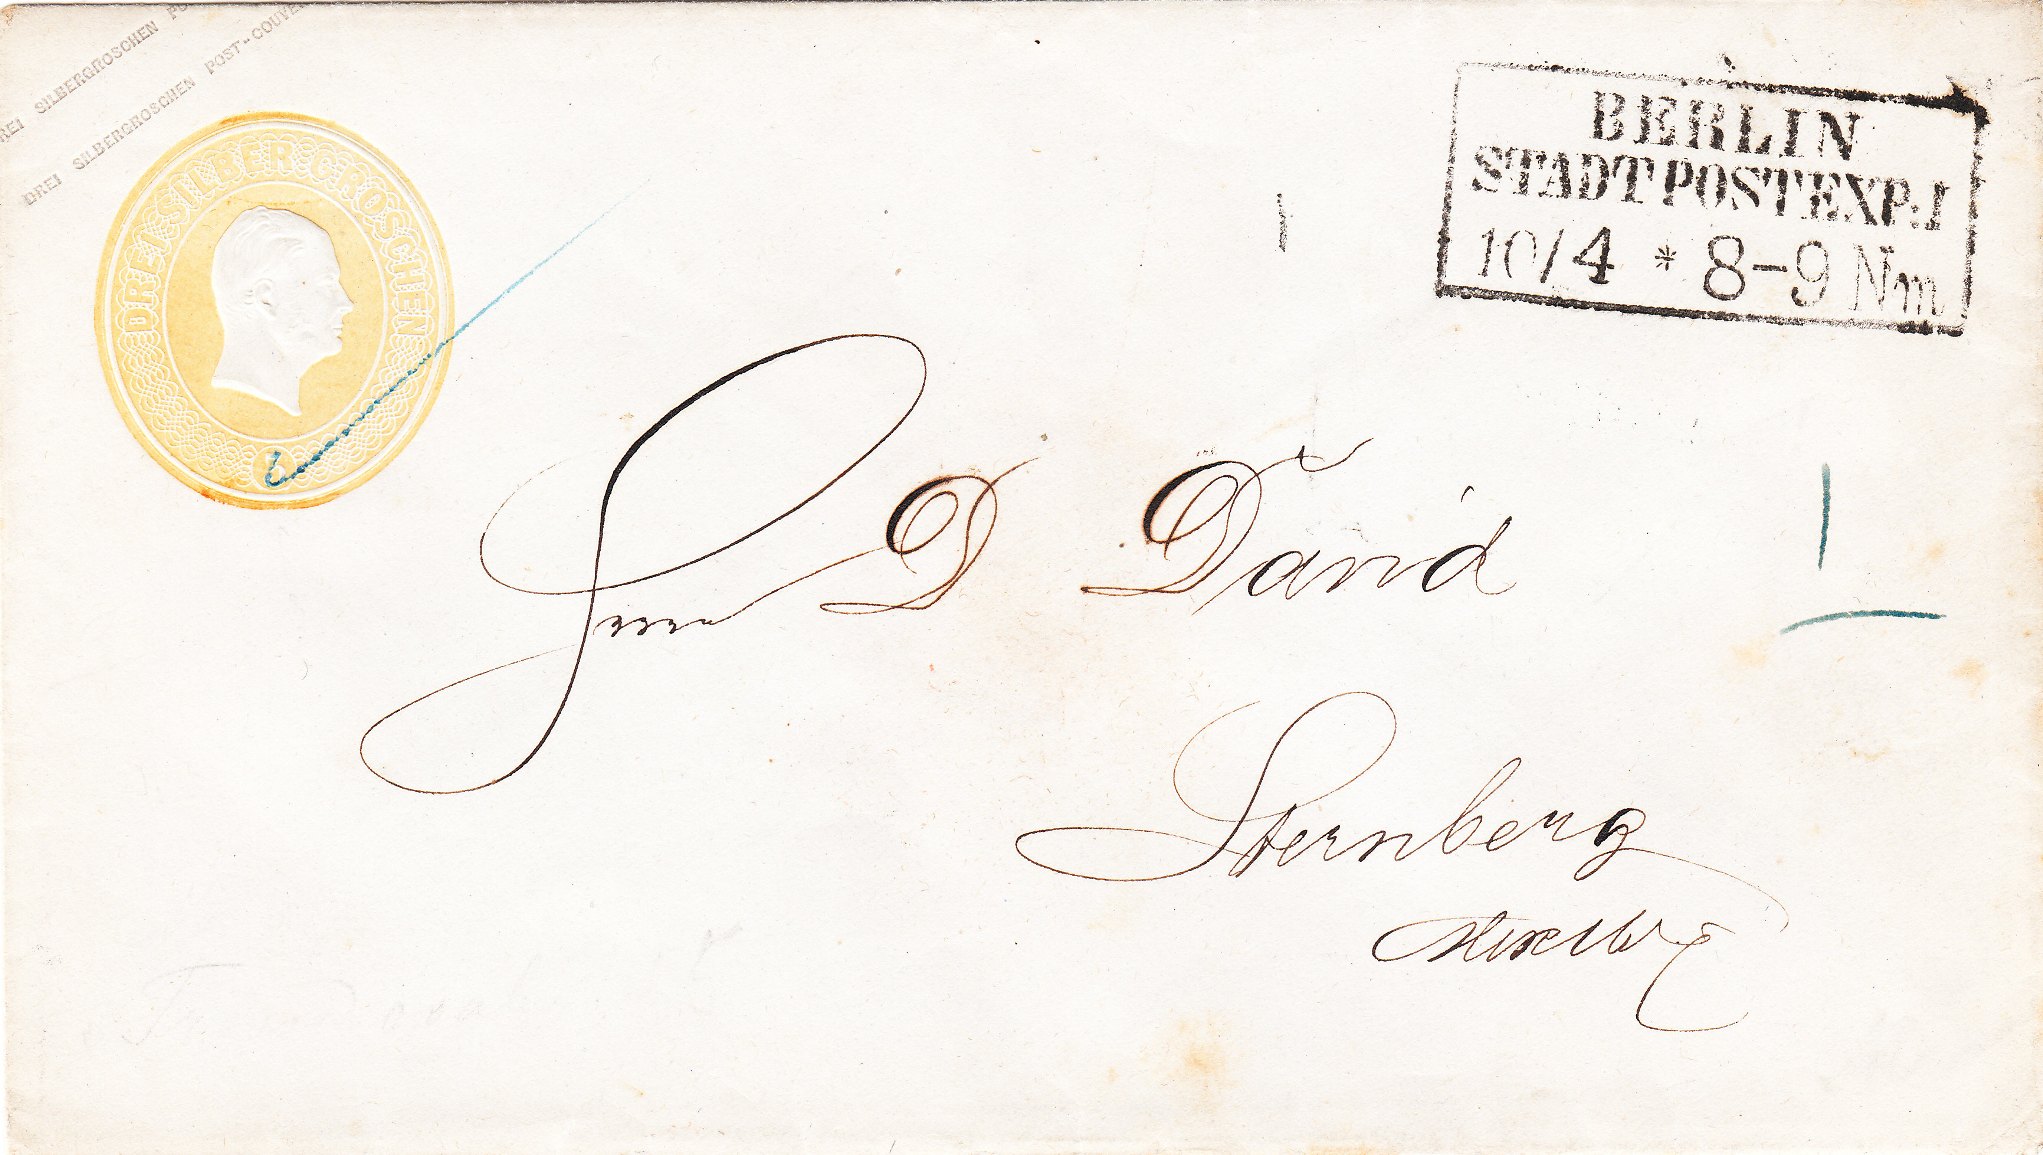 DREI SILBERGROSCHEN
DREI SILBERGROSCHEN POST-COUVE
DREI SILBER GROSCHEN
3
BERLIN
STADTPOSTEXP.I
10/4 * 8-9 Nm
Herrn D David
Sternberg